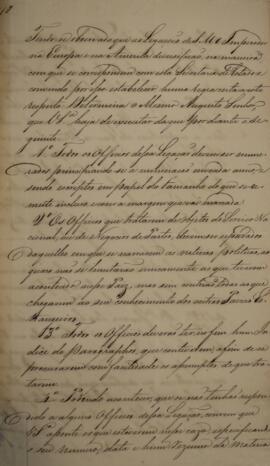 Tendo-se observado que as Legações de S. M. o Imperador
na Europa e na America diversificão, na maneira
com que se correspondem com esta Secretaria de Estado e
convindo por isso estabelecer huma regra certa a este
respeito, Determina o Mesmo Augusto Senhor,
que V Sª haja de executar daqui por diante o se-
guinte.
1º Todos os Officios dessa Legação devem ser nume-
rados principiando-se a numeração em cada anno, e
sendo escriptos em papel do tamanho do que se re-
mette incluso e com a margem que vai marcada.
2º Os Officios que tratarem de objectos do Serviço Na-
cional, ou de Negocios de Partes, devem ser separados
daquelles em que se the materias politicas, as
quaes não se limitarão unicamente ao que tiver
acontecido nesse Paiz, mas sim a tudo que
chegar ao seu conhecimento dos outros Paizes Es-
trangeiros.
3º Todos os Officios deverão ter no fim hum In-
dice de Paragraphos, que contiverem, a fim de se
procurarem com facilidade os assumptos de que tra-
tarem.
4º Podendo acontecer, que se não tenha respon-
dido a algum Officio dessa Legação, convem que
V Sª aponte os que estiverem nesse caso, especificando
o seu numero, data e hum resumo da materia